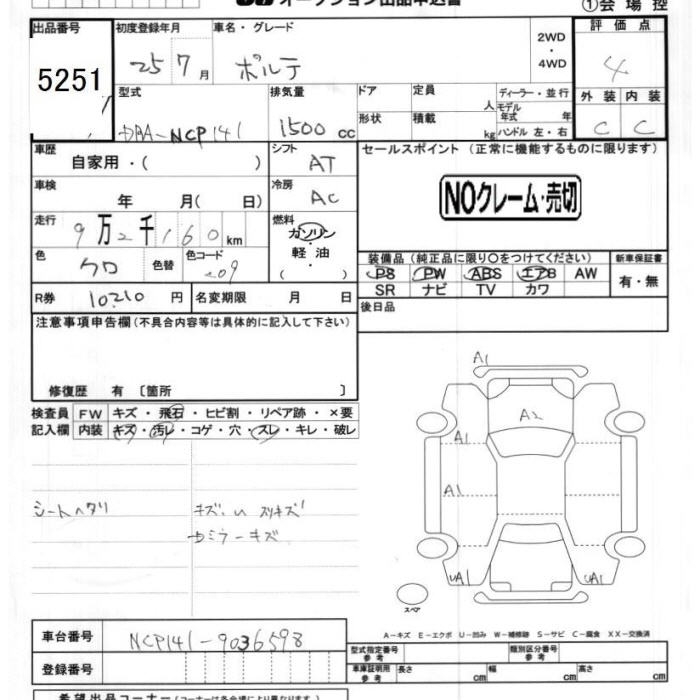 オークション出品申込書
①会場控
出品番号
5251
初度登録年月
25 7月
車名・グレード
ポルテ
2WD
・
4WD
評価点
4
型式
DBA-NCP141
排気量
1500 cc
ドア
定員
人
形状
積載
kg
ディーラー・並行
モデル年式 年
ハンドル 左・右
外装 内装
C C
車歴
自家用・( )
シフト
AT
セールスポイント (正常に機能するものに限ります)
NOクレーム・売切
車検
年 月( 日)
冷房
AC
走行
9万2千160km
燃料
ガソリン
・
軽油
( )
色
クロ
色替
色コード
209
装備品(純正品に限り○をつけてください)
新車保証書
PS PW ABS エアB AW
SR ナビ TV カワ
有・無
R券 10210 円
名変期限 月 日
後日品
注意事項申告欄(不具合内容等は具体的に記入して下さい)
修復歴 有 〔箇所 〕
検査員記入欄
FW キズ・飛石・ヒビ割・リペア跡・×要
内装 キズ・汚レ・コゲ・穴・スレ・キレ・破レ
シートヘタリ
キズ
スリキズ
ミラーキズ
A1
A2
A1
A1
UA1
UA1
スペア
A-キズ E-エクボ U-凹み W-補修跡 S-サビ C-腐食 XX-交換済
車台番号
NCP141-9036598
登録番号
型式指定番号 参考
類別区分番号 参考
車庫証明用 参考
長さ cm
幅 cm
高さ cm
希望出品コーナー(コーナーは各会場により異なります。)